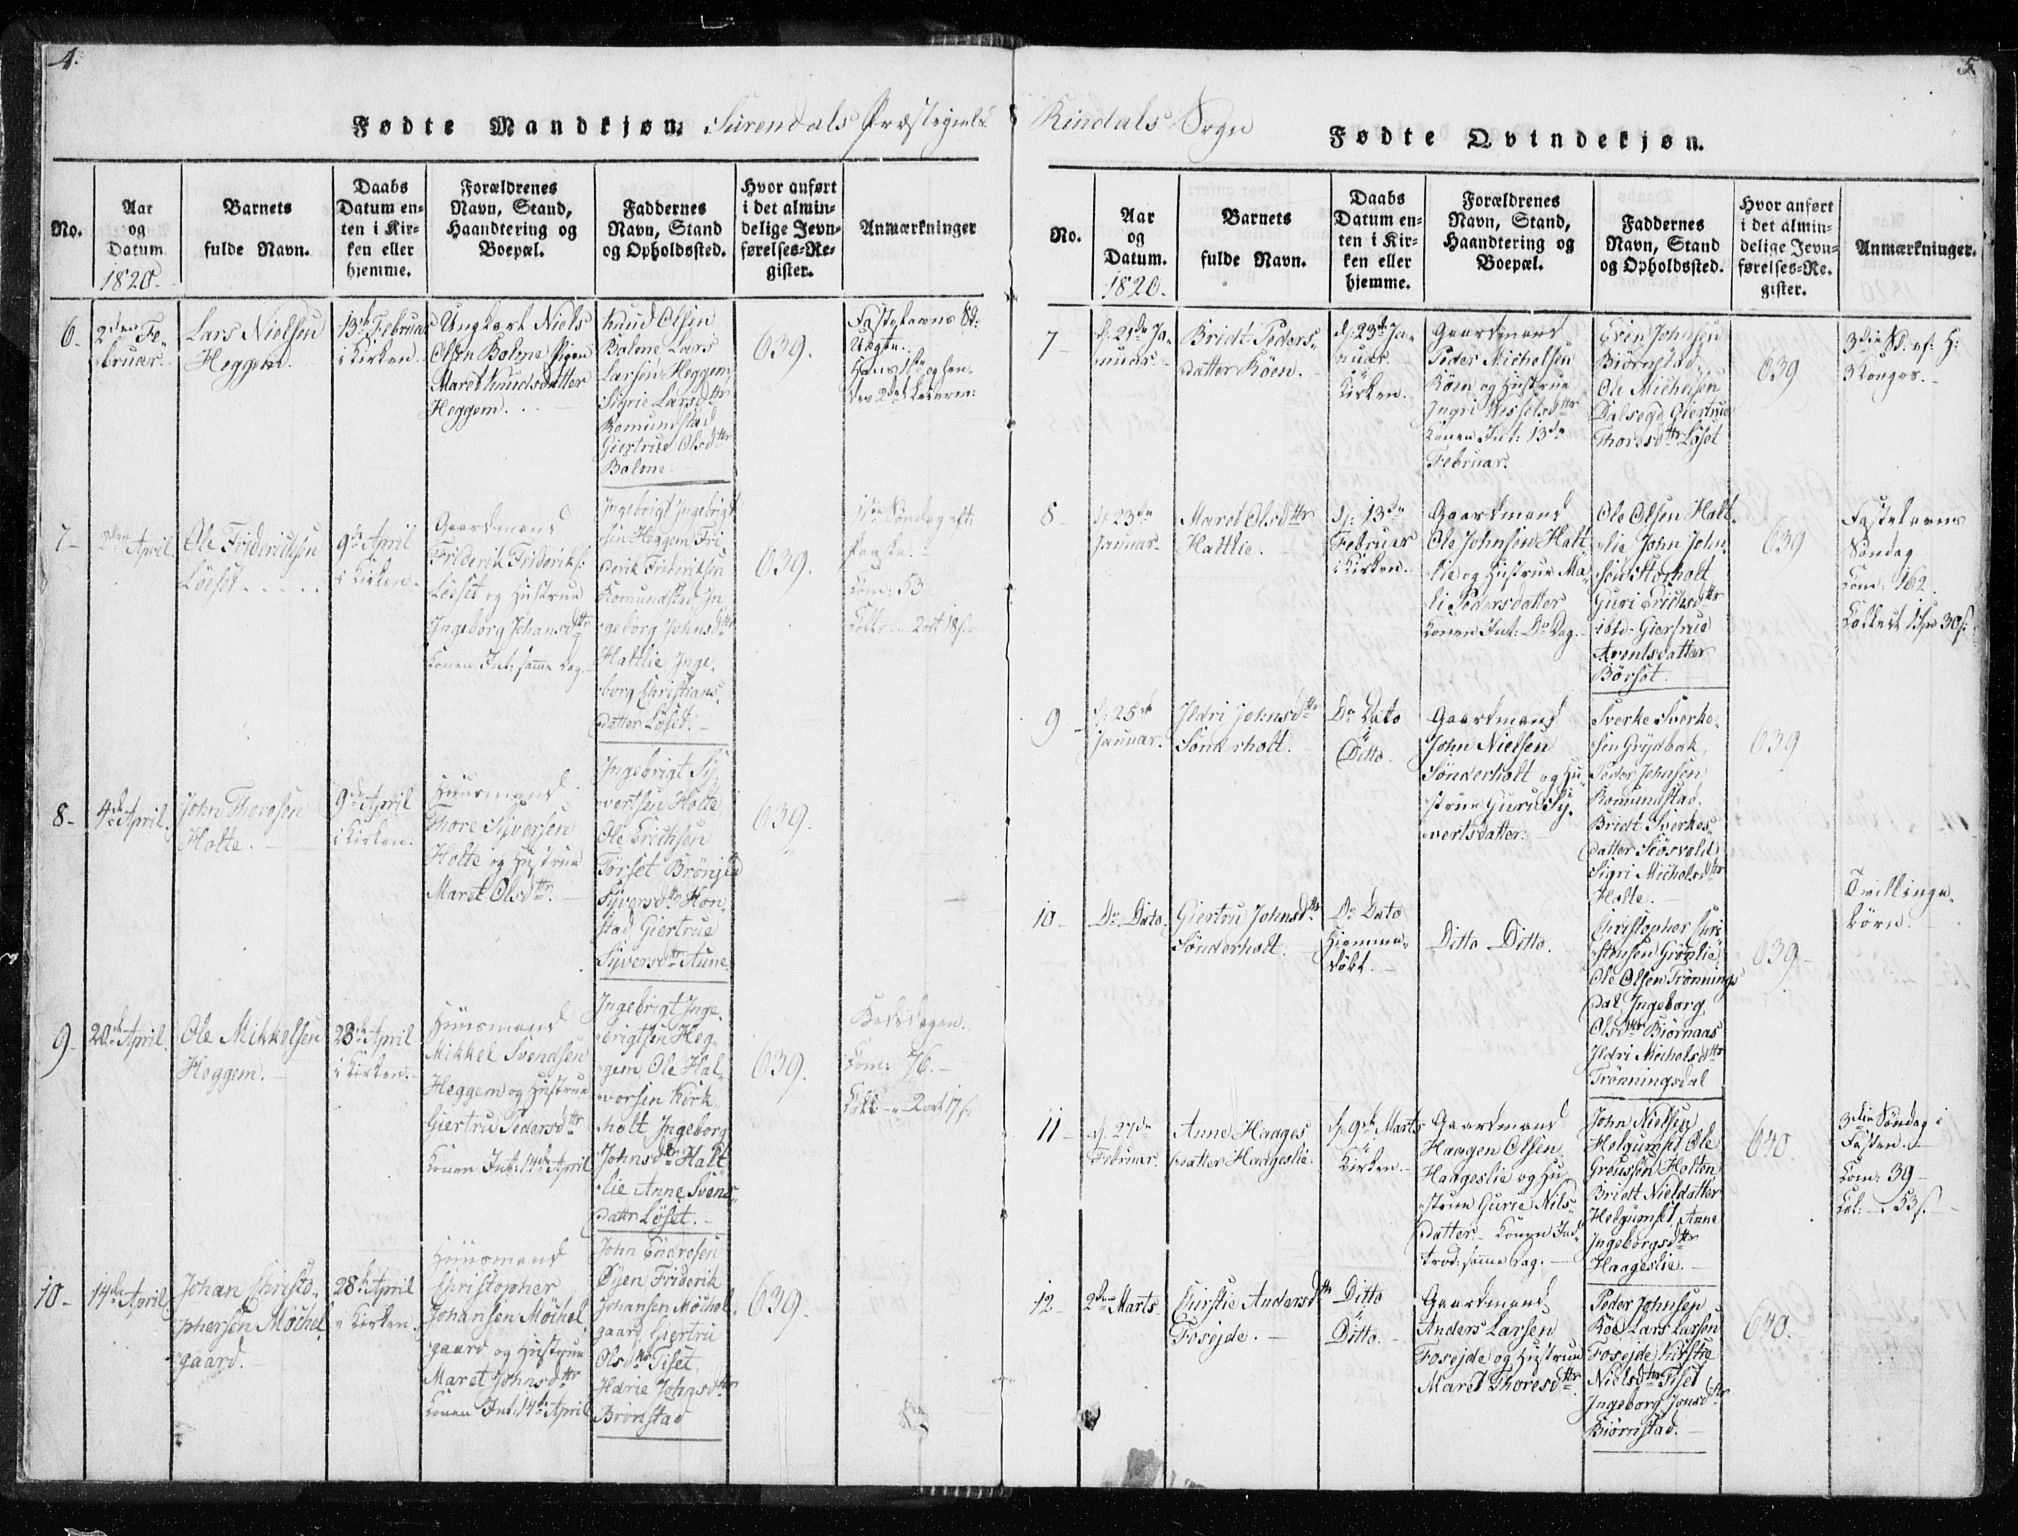 4.
Fødte Mandkjøn. Surendals Præstegield
No.
Aar og Datum. 1820.
Barnets fulde Navn.
Daabs Datum enten i Kirken eller hjemme.
Forældrenes Navn, Stand, Haandtering og Boepæl.
Faddernes Navn, Stand og Opholdssted.
Hvor anført i det almindelige Jevnførelses-Register.
Anmærkninger
6.
2den Februar.
Lars Nielsen
Heggem.
13de Februar
i Kirken.
Ungkarl Niels
Olsen Bolme Pigen
Maret Knudsdatter
Heggem.
Knud Olsen
Bolme Lars
Larsen Heggem
Sigrie Larsdttr
Romundstad
Giertrue Olsdttr
Bolme.
639.
Fastelavns Sd:
7-
2den April.
Ole Friderichsen
Löset
9de April
i Kirken.
Gaardmand
Friderik Frideriks:
Löset og Hustrue
Ingeborg Johansdttr
Konen Int: samme Dag.
Ingebrigt Ingebrigt
sen Heggem Fri
derik Frideriksen
Romundstad In
geborg Johnsdttr
Hattlie Inge-
borg Christians
datter Löset.
639.
1ste Söndag eft:
Paaske.
Com: 53
2ort 18s.
8-
4de April.
John Thoresen
Holte.
9de April
i Kirken.
Huusmand
Thore Syversen
Holte og Hustrue
Maret Olsdttr.
Ingebrigt Sy-
vertsen Holte
Ole Erichsen
Torset Brönjel
Syversdttr Hon-
stad Giertrue
Syversdttr Aune.
639.
9-
20de April.
Ole Mikkelsen
Heggem.
28de April
i Kirken.
Huusmand
Mikkel Svendsen
Heggem og Hustrue
Giertru Pedersdttr
Konen Int: 14de April
Ingebrigt Inge-
brigtsen Heg-
gem, Ole Hal-
vorsen Kirk-
holt Ingeborg
Johnsdttr Hatt
lie, Anne Svens-
dattr Löset.
639.
Bededagen.
Com: 76.
2ort 17s.
10-
14de April.
Johan Christo-
phersen Möchel
gaard.
28de April
i Kirken.
Huusmand
Christopher
Johansen Möchel
gaard og Hustrue
Maret Johnsdttr
Konen Int: 14de April
John Endresen
Øyen Friderik
Johansen Möchel
gaard, Giertru
Olsdttr Tiset
Ildrie Johnsdttr
Brönstad
639.
5.
Rindals Sogn Fødte Qvindekjøn.
No.
Aar og Datum. 1820.
Barnets fulde Navn.
Daabs Datum enten i Kirken eller hjemme.
Forældrenes Navn, Stand, Haandtering og Boepæl.
Faddernes Navn, Stand og Opholdssted.
Hvor anført i det almindelige Jevnførelses-Register.
Anmærkninger.
7-
d. 21de Ja-
nuar.
Bridt Peders-
datter Röen.
d. 23de Ja-
nuar
i
Kirken.
Gaardmand
Peder Michelsen
Röen og Hustrue
Ingri
Konen Int: 13de
Februar.
Johnsen
Biörnstad.
Ole Michelsen
Dalsegg Giertrue
Thoresdttr Löset
639
3die Sd. ef: H:
3 Konger.
8-
d. 23de
Januar.
Maret Olsdttr
Hattlie.
d. 13de
Februar
i Kirken.
Gaardmand
Ole Johnsen Hatt
lie og Hustrue Ma-
li Pedersdatter
Konen Int: Do Dag.
Ole Olsen Hatt-
lie, John John-
sen Storholt
Guri Erichsdttr
ibid. Giertrue
Arentsdatter
Börset.
639
Fastelavns
Söndag
Com: 162.
30s.
9-
d. 25de
Januar.
Ildri Johnsdttr
Sönderholt.
Do Dato
i
Ditto.
Gaardmand
John Nielsen
Sönderholt og Hu-
strue Guru Sy-
vertsdatter.
Sverke Sverke-
sen Grytbak,
Peder Johnsen
Romundstad.
Bridt Sverkes-
datter Siösvold
Sigri Micholsdttr
Holte.
639
10-
Do Dato.
Giertru Johnsdttr
Sönderholt.
Do Dato
Hjemme-
döbt.
Ditto Ditto.
Christopher Cri
stensen Grönlie,
Ole Olsen Trönnings
dal, Ingeborg
Olsdttr Biörnaas
Ildri Micholsdttr
Trönningsdal
639-
Tvillinge-
börn.
11-
d. 27de
Februar.
Anne Haages
datter Haageslie.
d. 9de Marts
i
Kirken.
Gaardmand
Haagen Olsen
Haageslie og Hu-
strue Gurie Nils-
datter. Konen Int-
rod: samme Dag.
John Nielsen
Helgumset Ole
Holten
Bridt Nielsdatter
Helgumset, Anne
Ingeborgsdttr
Haageslie.
640.
3die Söndag i
Fasten.
Com: 39-
Col: 53s.
12-
2den Marts.
Cirstie Andersdttr
Foseide.
Ditto
i
Ditto.
Gaardmand,
Anders Larsen
Foseide og Hustrue
Maret Thoresdttr.
Peder Johnsen
Röe, Lars Larsen
Foseide, Kirstie
Nielsdttr Tiset
Ingeborg Jonsdttr
Biörnstad.
640.